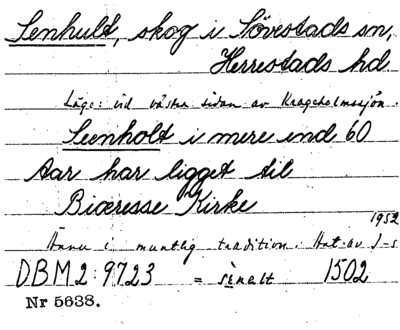 Senhult, skog i Sövestads sn,
Herrestads hd.
Läge: vid västra sidan av Krageholmssjön.
Seenholt i mere end 60
Aar har ligget til
Biæresse Kirke
1952
Ännu i muntlig tradition. Hot. av J-s
DBM 2:9723 = sènelt 1502
Nr 5638.